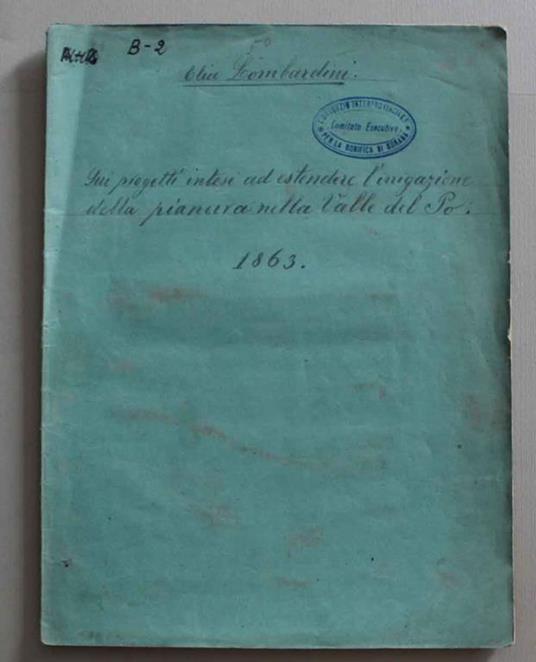 B-2
Elia Lombardini.
CONSORZIO INTERPROVINCIALE
Comitato Esecutivo
PER LA BONIFICA DI BURANA
Sui progetti intesi ad estendere l'irrigazione
della pianura nella Valle del Po.
1863.